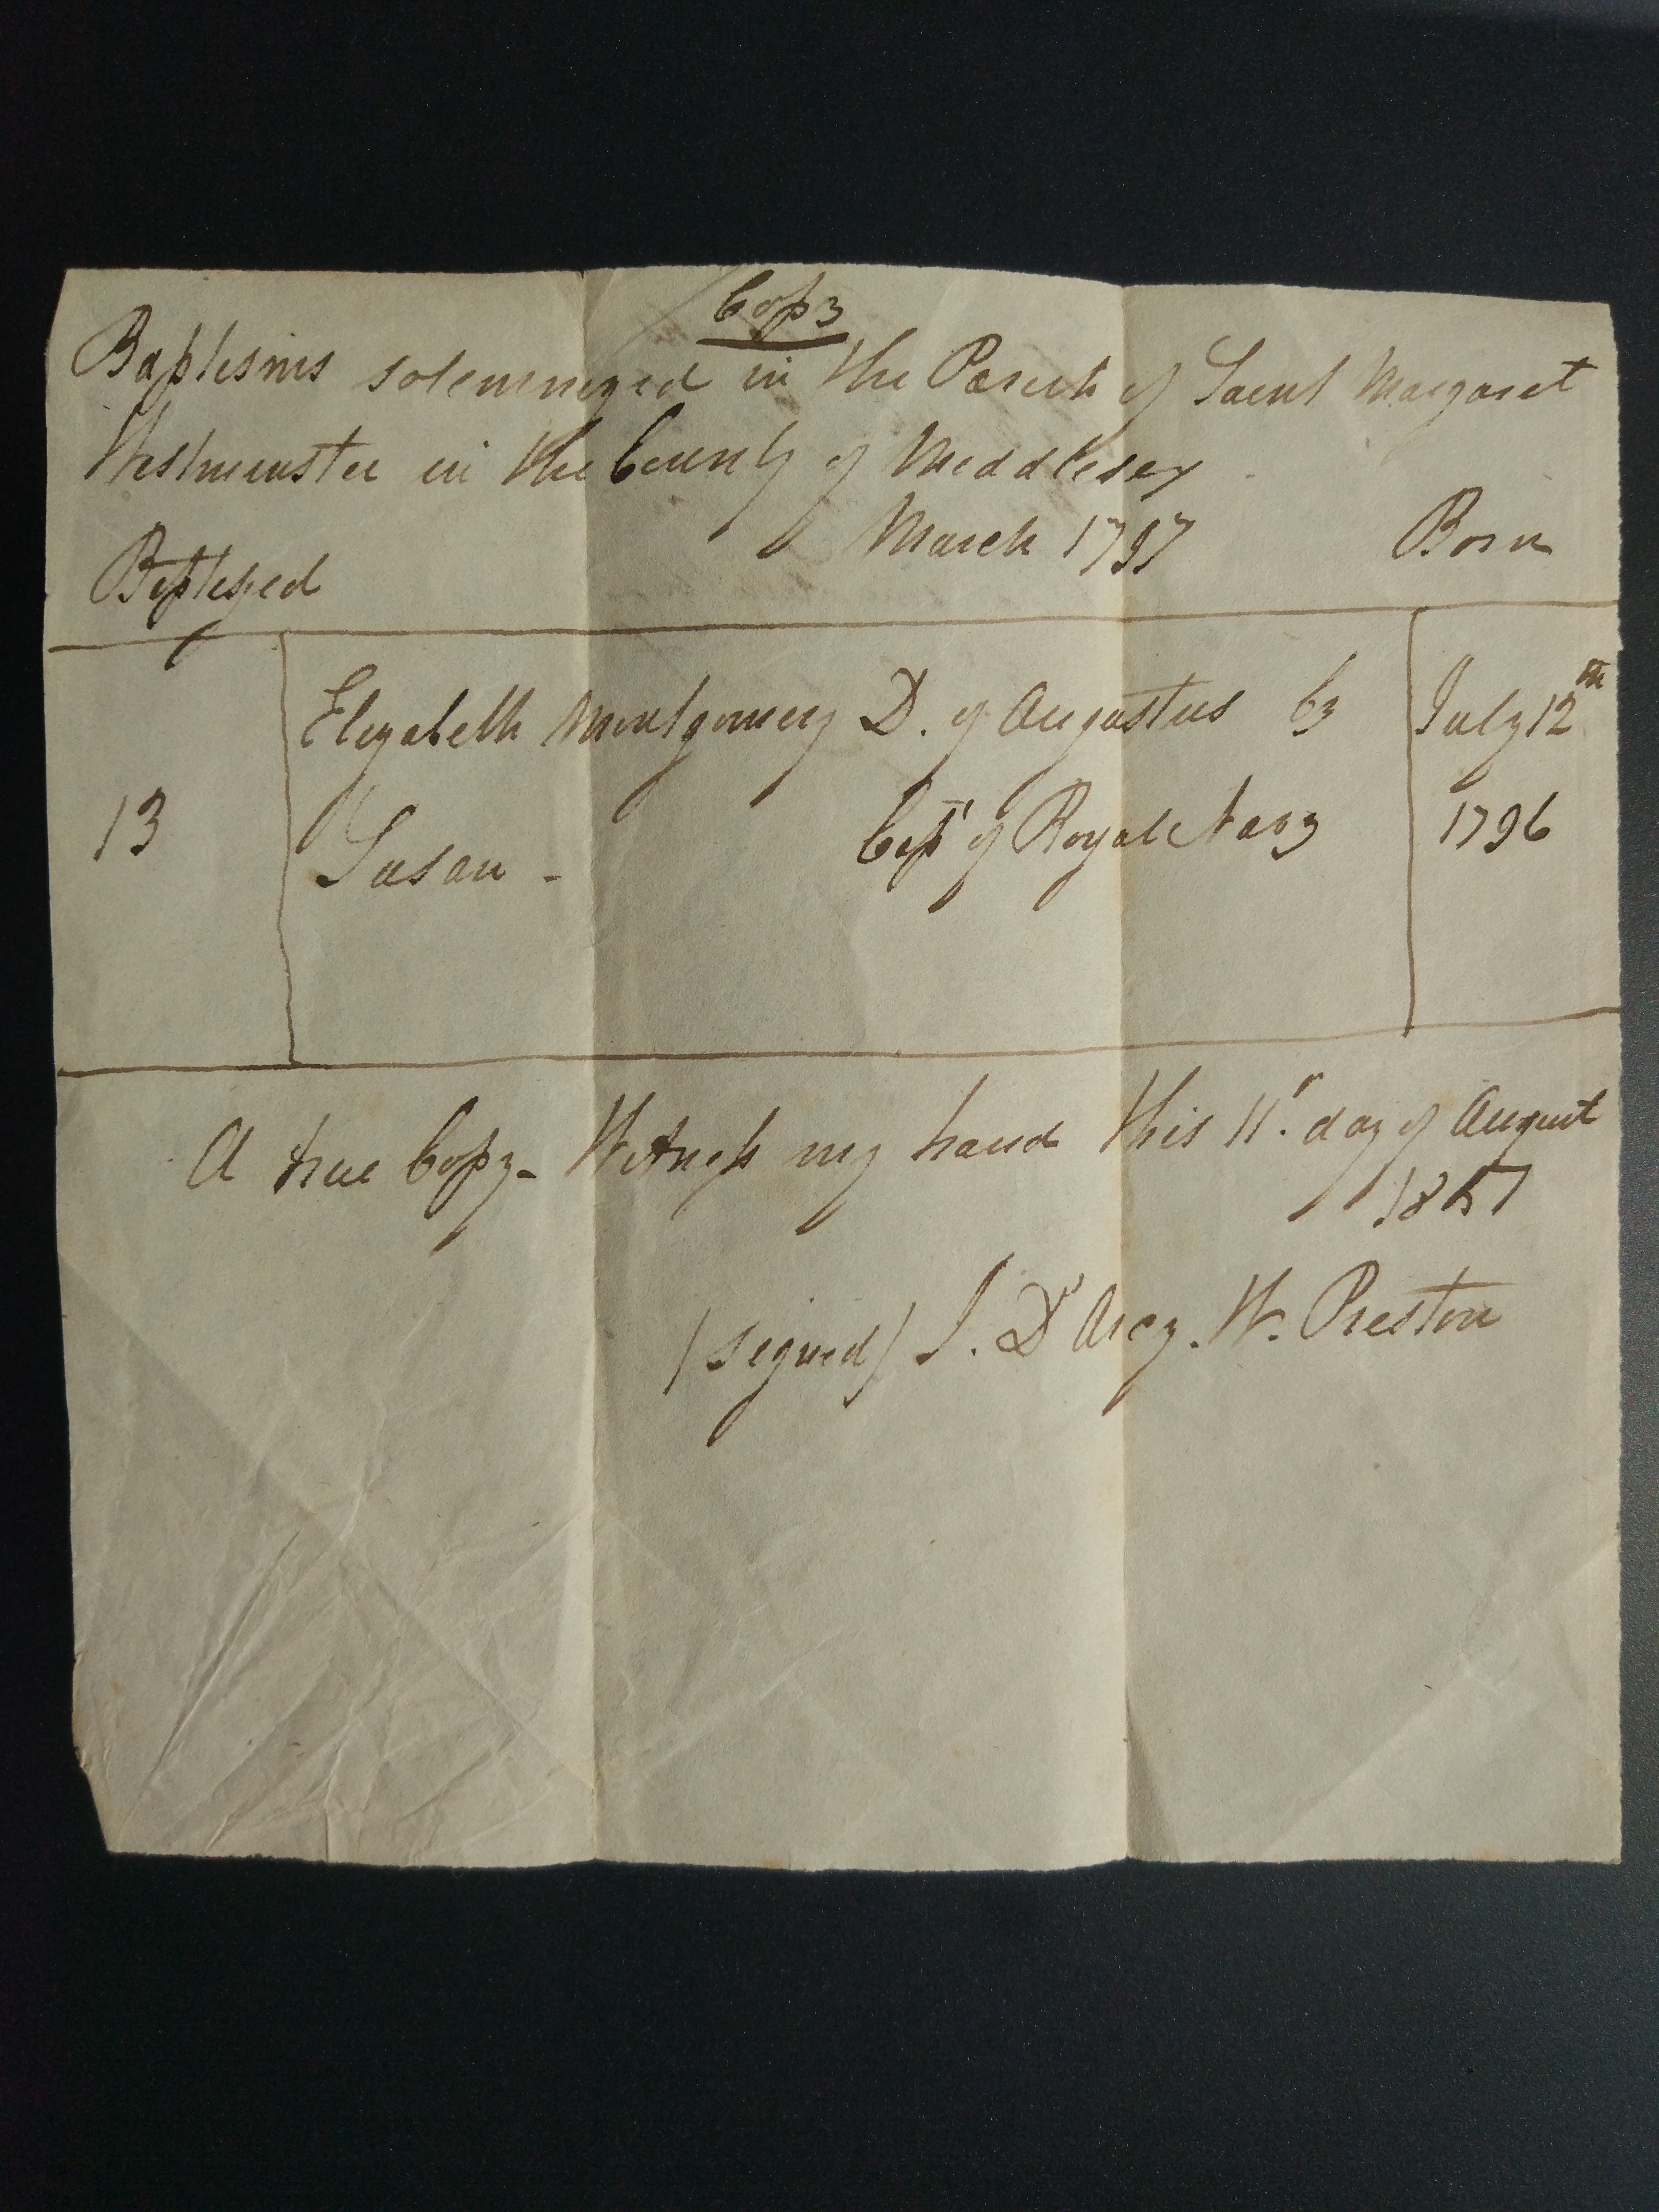 Copy
Baptisms solemnized in the Parish of Saint Margaret
Westminster in the County of Middlesex
March 1797 Born
Baptized
Elizabeth Montgomery D. of Augustus by July 12th
13 Susan - Capt of Royal Navy 1796
A true Copy - Witness my hand this 11. day of August
1857
(signed) J. D'Arcy. W. Preston